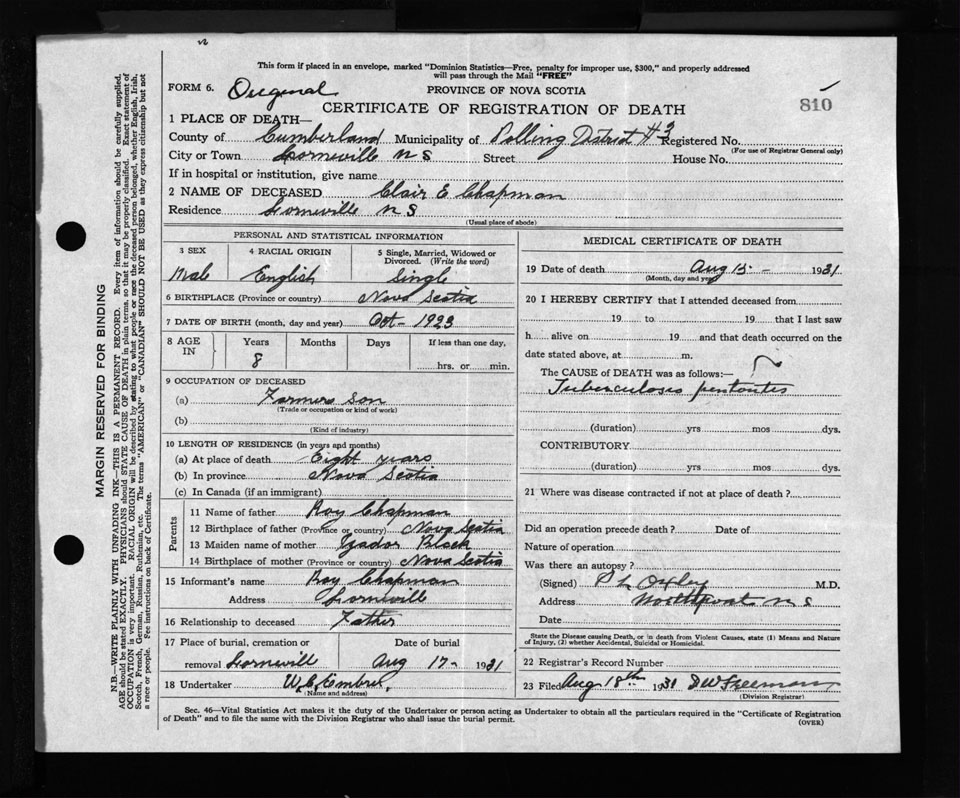 This form if placed in an envelope, marked "Dominion Statistics—Free, penalty for improper use, $300," and properly addressed
will pass through the Mail "FREE"
FORM 6. Original PROVINCE OF NOVA SCOTIA
CERTIFICATE OF REGISTRATION OF DEATH 810
1 PLACE OF DEATH—
County of Cumberland Municipality of Polling District #3 Registered No.
(For use of Registrar General only)
City or Town Lorneville N S Street House No.
If in hospital or institution, give name
2 NAME OF DECEASED Clair E Chapman
Residence Lorneville N S
(Usual place of abode)
PERSONAL AND STATISTICAL INFORMATION
3 SEX 4 RACIAL ORIGIN 5 Single, Married, Widowed or
Divorced. (Write the word)
Male English Single
6 BIRTHPLACE (Province or country) Nova Scotia
7 DATE OF BIRTH (month, day and year) Oct - 1923
8 AGE IN Years Months Days If less than one day,
8 hrs. or min.
9 OCCUPATION OF DECEASED
(a) Farmers Son
(Trade or occupation or kind of work)
(b)
(Kind of industry)
10 LENGTH OF RESIDENCE (in years and months)
(a) At place of death Eight years
(b) In province Nova Scotia
(c) In Canada (if an immigrant)
Parents
11 Name of father Roy Chapman
12 Birthplace of father (Province or country) Nova Scotia
13 Maiden name of mother Black
14 Birthplace of mother (Province or country) Nova Scotia
15 Informant's name Roy Chapman
Address Lorneville
16 Relationship to deceased Father
17 Place of burial, cremation or Date of burial
removal Lornevill Aug 17 - 1931
18 Undertaker W.C.
(Name and address)
MEDICAL CERTIFICATE OF DEATH
19 Date of death Aug 15 - 1931
(Month, day and year)
20 I HEREBY CERTIFY that I attended deceased from
19 to 19 that I last saw
h alive on 19 and that death occurred on the
date stated above, at m.
The CAUSE of DEATH was as follows:—
Tuberculosis
(duration) yrs mos dys.
CONTRIBUTORY
(duration) yrs mos dys.
21 Where was disease contracted if not at place of death?
Did an operation precede death? Date of
Nature of operation
Was there an autopsy?
(Signed) Oxley M.D.
Address Northport N S
Date
State the Disease causing Death, or in death from Violent Causes, state (1) Means and Nature
of Injury, (2) whether Accidental, Suicidal or Homicidal.
22 Registrar's Record Number
23 Filed Aug 18th 1931 D W Freeman
(Division Registrar)
Sec. 46—Vital Statistics Act makes it the duty of the Undertaker or person acting as Undertaker to obtain all the particulars required in the "Certificate of Registration
of Death" and to file the same with the Division Registrar who shall issue the burial permit.
(OVER)
MARGIN RESERVED FOR BINDING
N.B.—WRITE PLAINLY WITH UNFADING INK—THIS IS A PERMANENT RECORD. Every item of information should be carefully supplied.
AGE should be stated EXACTLY. PHYSICIANS should STATE CAUSE OF DEATH in plain terms, so that it may be properly classified. Exact statement of
OCCUPATION is very important. RACIAL ORIGIN will be described by stating to what people or race the deceased person belonged, whether English, Irish,
Scotch, French, German, Russian, Ruthenian, etc. The terms "AMERICAN" or "CANADIAN" SHOULD NOT BE USED as they express citizenship but not
a race or people. See instructions on back of Certificate.